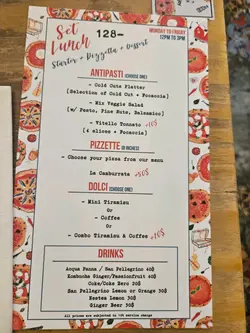 Set Lunch
128-
MONDAY TO FRIDAY
12PM TO 3PM
Starter + Pizzetta + Dessert
ANTIPASTI (CHOOSE ONE)
- Cold Cuts Platter
[Selection of Cold Cut + Focaccia]
- Mix Veggie Salad
[w/ Pesto, Pine Nuts, Balsamico]
- Vitello Tonnato +10$
[4 slices + Focaccia]
PIZZETTE (8 INCHES)
- Choose your pizza from our menu
La Camburrata +50$
DOLCI (CHOOSE ONE)
- Mini Tiramisu
Or
- Coffee
Or
- Combo Tiramisu & Coffee +20$
DRINKS
Acqua Panna / San Pellegrino 40$
Kombucha Ginger/Passionfruit 40$
Coke/Coke Zero 20$
San Pellegrino Lemon or Orange 30$
Nestea Lemon 30$
Ginger Beer 30$
All prices are subjected to 10% service charge